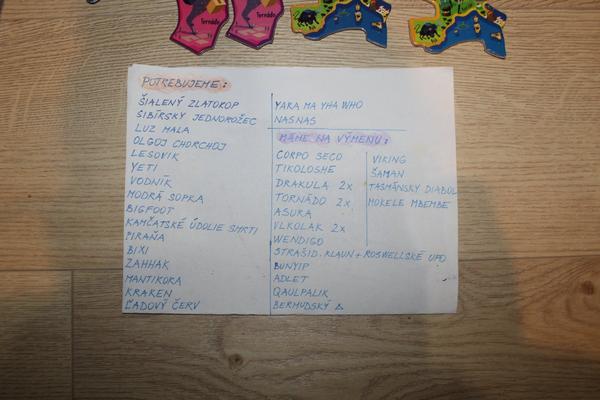 Tornádo
Tornádo
POTREBUJEME:
ŠIALENÝ ZLATOKOP
SIBÍRSKY JEDNOROŽEC
LUZ MALA
OLGOJ CHORCHOJ
LESOVIK
YETI
VODNÍK
MODRÁ SOPKA
BIGFOOT
KAMČATSKÉ ÚDOLIE SMRTI
PIRAŇA
BIXI
ZAHHAK
MANTIKORA
KRAKEN
ĽADOVÝ ČERV
YARA MA YHA WHO
NASNAS
MÁME NA VÝMENU:
CORPO SECO
TIKOLOSHE
DRAKULA 2x
TORNÁDO 2x
ASURA
VLKOLAK 2x
WENDIGO
STRAŠID. KLAUN + ROSWELLSKÉ UFO
BUNYIP
ADLET
QALUPALIK
BERMUDSKÝ Δ
VIKING
ŠAMAN
TASMÁNSKY DIABOL
MOKELE MBEMBE